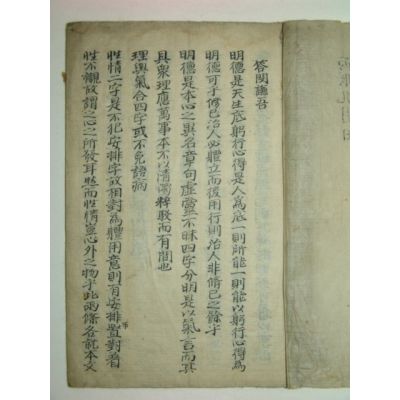 答閔謹吾
明德是天生底躬行心得是人爲底一則所能一則能以躬行心得爲
明德可乎修己治人必體立而後用行則治人非修己之餘乎
明德是本心之異名章句虛靈不昧四字分明是以氣言而其
具衆理應萬事本不以清濁粹駁而有間也
理與氣合四字或不免語病
性情二字是不犯安排字故相對爲體用意則有安排置對着
性不襯故謂之心之所發耳然而性情豈心外之物乎此兩條各就本文